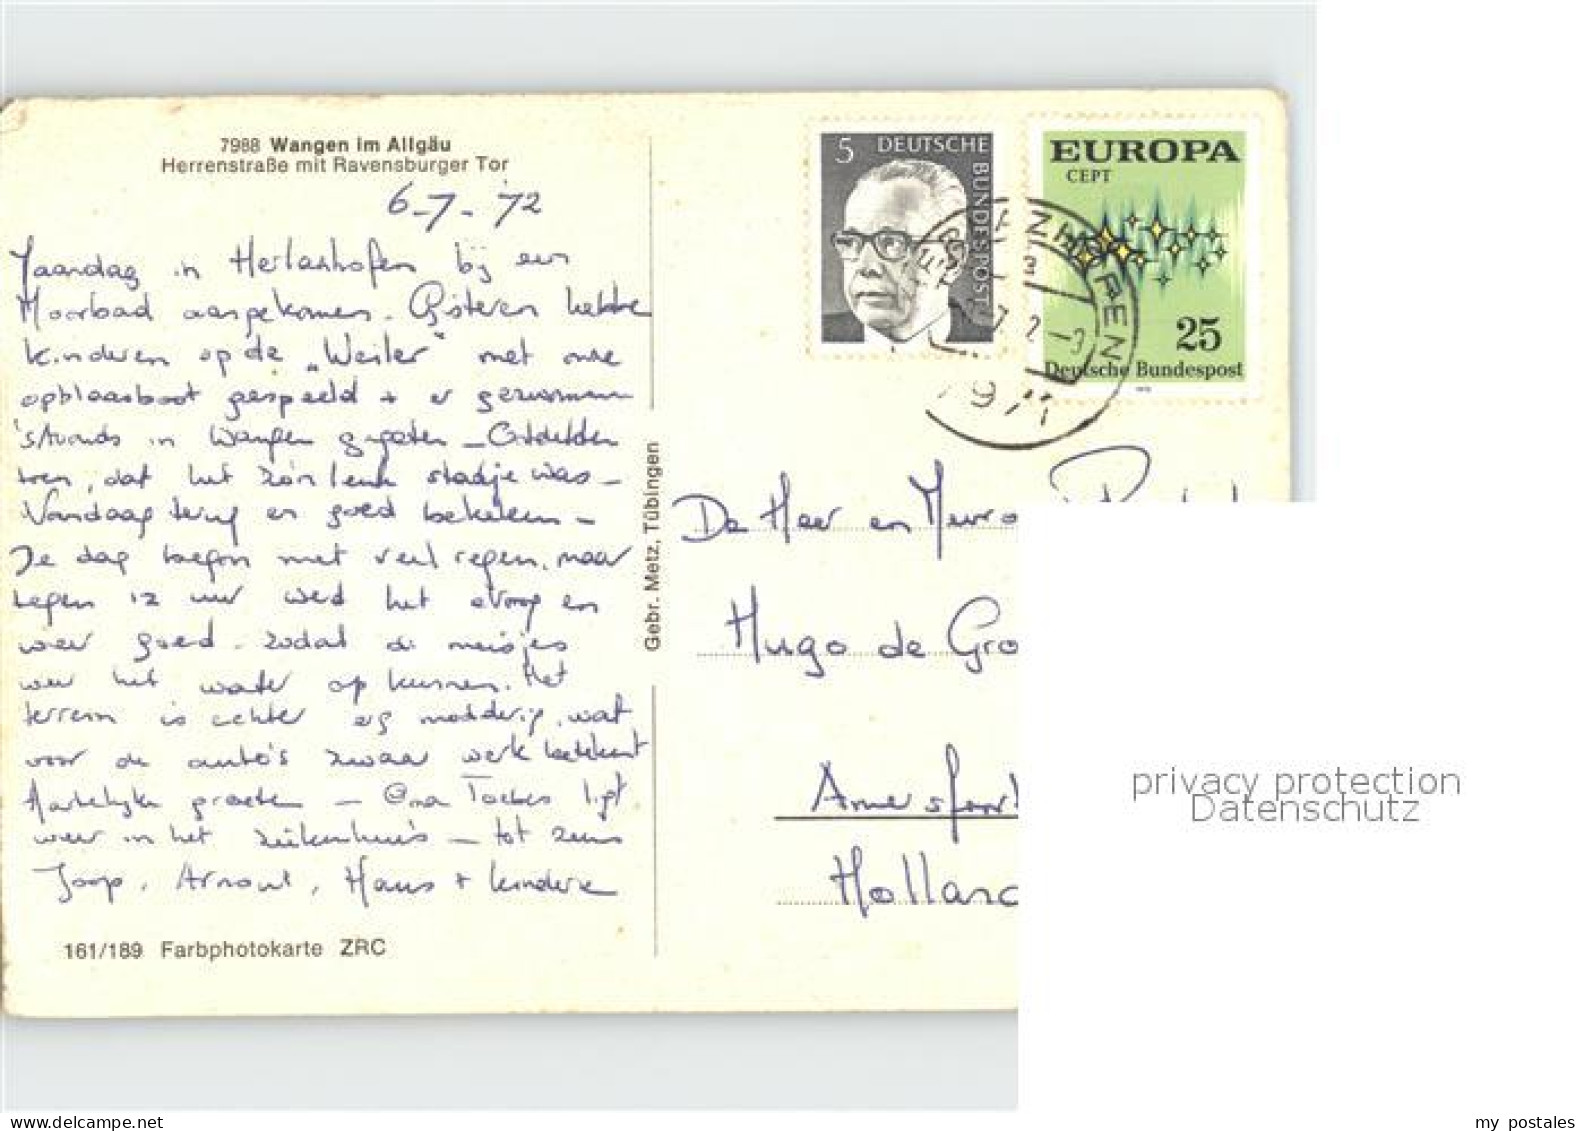 7988 Wangen im Allgäu
Herrenstraße mit Ravensburger Tor
6-7-'72
Maandag in Herlazhofen bij een
Moorbad aangekomen. Gisteren hebben
kinderen op de „Weiler" met onze
opblaasboot gespeeld + er gezwommen
's Avonds in Wangen gegeten - Ontdekten
toen, dat het zo'n leuk stadje was -
Vandaag terug en goed bekeken -
De dag begon met veel regen, maar
tegen 12 uur werd het droog en
weer goed - zodat de meisjes
weer het water op kunnen. Het
terrein is echter erg modderig, wat
voor de auto's zwaar werk betekent
Hartelijke groeten - Oma ligt
weer in het ziekenhuis - tot ziens
Joop, Arnout, Hans + kinderen
161/189 Farbphotokarte ZRC
Gebr. Metz, Tübingen
5 DEUTSCHE BUNDESPOST
EUROPA
CEPT
25
Deutsche Bundespost
De Heer en Mevro
Hugo de Gro
Amersfoort
Holland
privacy protection
Datenschutz
my postales